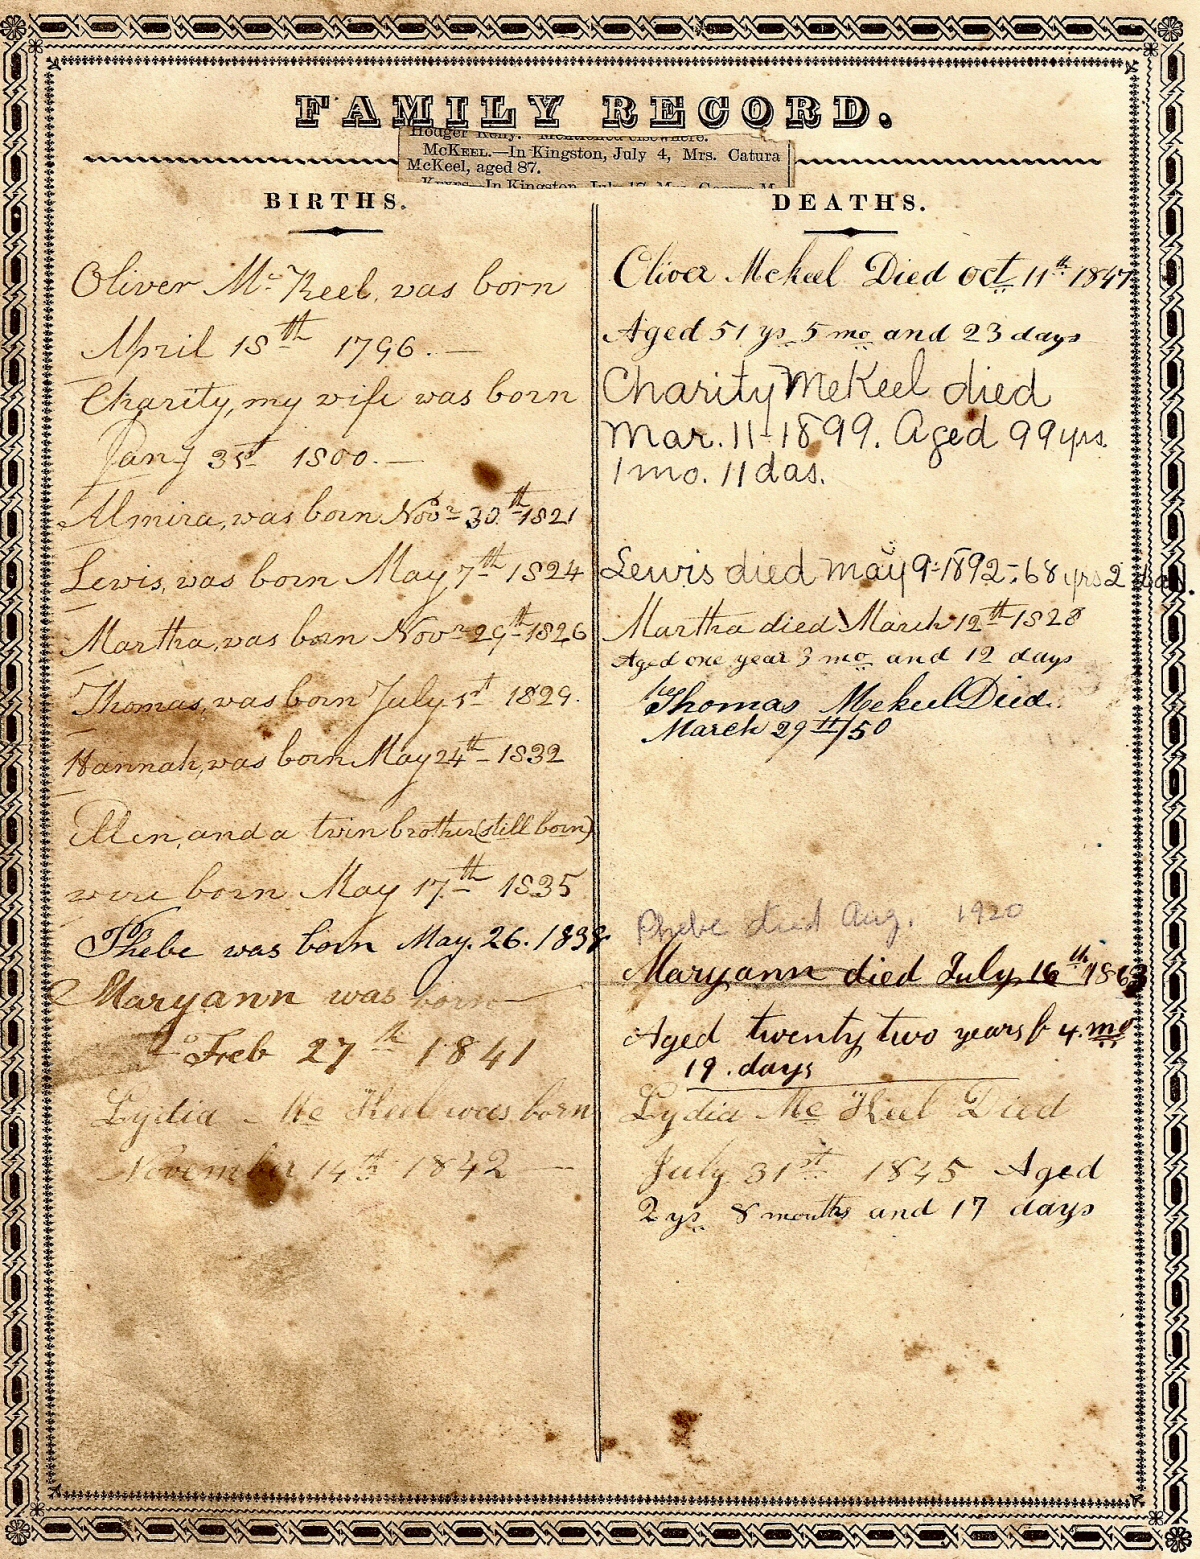 FAMILY RECORD.
McKEEL.—In Kingston, July 4, Mrs. Catura
McKeel, aged 87.
BIRTHS.
Oliver Mc Keel, was born
April 18th 1796.—
Charity, my wife was born
Jany 31st 1800.—
Almira, was born Novr 30th 1821
Lewis, was born May 7th 1824
Martha, was born Novr 29th 1826
Thomas, was born July 1st 1829.
Hannah, was born May 24th 1832
Allen, and a twin brother (still born)
were born May 17th 1835
Phebe was born May. 26. 1838
Maryann was born
Feb 27th 1841
Lydia Mc Keel was born
November 14th 1842
DEATHS.
Oliver Mckeel Died oct 11th 1847
Aged 51 ys 5 mo and 23 days
Charity McKeel died
Mar. 11-1899. Aged 99 yrs.
1 mo. 11 das.
Lewis died May 9-1892-68 yrs 2 das.
Martha died March 12th 1828
Aged one year 3 mo and 12 days
Thomas Mckeel Died.
March 29th/50
Phebe died Aug. 1920
Maryann died July 16th 1863
Aged twenty two years 4. mo
19. days
Lydia Mc Keel Died
July 31st 1845 Aged
2 ys. 8 months and 17 days